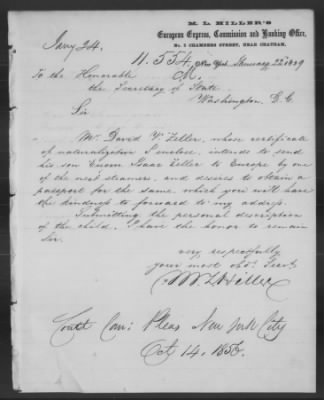 M. L. HILLER'S
European Express, Commission and Banking Office,
No. 3 CHAMBERS STREET, NEAR CHATHAM,
Jany 24.
11.554. New York January 22 1859
To the Honorable M.
the Secretary of State
Washington. D. C
Sir
Mr David V. Zeller, whose certificate
of naturalization I enclose, intends to send
his son Isaac Zeller to Europe by one
of the next steamers, and desires to obtain a
passport for the same, which you will have
the kindness to forward to my address.
Submitting the personal description
of the child, I have the honor to remain
Sir.
very respectfully
your most obdt. Servt
M. L. Hiller
Court Com: Pleas New York City
Oct 14. 1856.